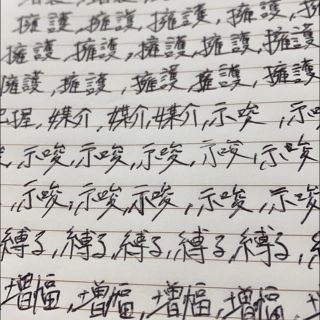 擁護,擁護,擁護,擁護,擁
擁護,擁護,擁護,擁護,擁護
擁護,擁護,擁護,擁護,擁護
握,媒介,媒介,媒介,示唆,示
,示唆,示唆,示唆,示唆,示唆
,示唆,示唆,示唆,示唆,示唆
縛る,縛る,縛る,縛る,縛る,
増幅,増幅,増幅,増幅,増